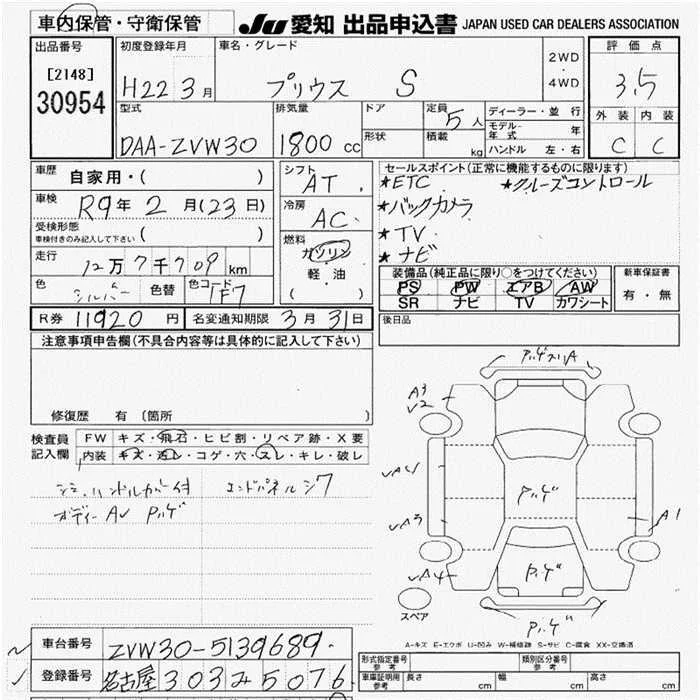 車内保管・守衛保管
JU 愛知 出品申込書 JAPAN USED CAR DEALERS ASSOCIATION
出品番号
[2148]
30954
初度登録年月
H22 3月
車名・グレード
プリウス S
2WD
・
4WD
評価点
3.5
外装 内装
C C
型式
DAA-ZVW30
排気量
1800 cc
ドア
形状
定員 5人
積載 kg
ディーラー・並行
モデル年式 年
ハンドル 左・右
車歴
自家用・( )
車検
R9年 2月(23日)
受検形態
車検付きのみ記入して下さい ( )
走行
12万7千709km
色 シルバー 色替 色コード 1F7
シフト
AT
冷房
AC
燃料
ガソリン
軽・油
( )
セールスポイント(正常に機能するものに限ります)
*ETC *クルーズコントロール
*バックカメラ
*TV
*ナビ
装備品(純正品に限り○をつけてください)
PS PW エアB AW
SR ナビ TV カワシート
新車保証書
有・無
R券 11920円 名変通知期限 3月31日
後日品
注意事項申告欄(不具合内容等は具体的に記入して下さい)
修復歴 有 (箇所 )
検査員記入欄
FW キズ・飛石・ヒビ割・リペア跡・X要
内装 キズ・汚レ・コゲ・穴・スレ・キレ・破レ
ハンドルカバー付 エンドパネルシワ
ボディーAU Pハゲ
A3
U2
A1
UA3
UA4
Pハゲ
Pハゲ
Pハゲ
スペア
A-キズ E-エクボ U-凹み W-補修跡 S-サビ C-腐食 XX-交換済
車台番号 ZVW30-5139689
登録番号 名古屋 303み5076
形式指定番号
参考
類別区分番号
参考
車庫証明用
参考
長さ cm 幅 cm 高さ cm